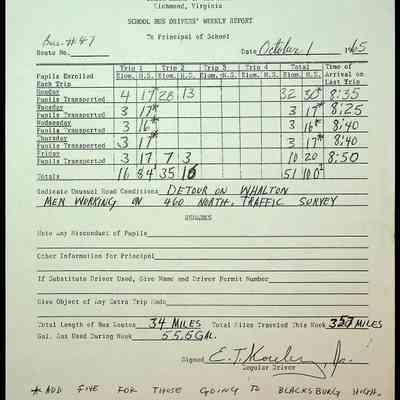 Richmond, Virginia
SCHOOL BUS DRIVERS' WEEKLY REPORT
To Principal of School
Bus #47
Route No. Date October 1 1965
Trip 1 Trip 2 Trip 3 Trip 4 Total Time of
Pupils Enrolled Elem. H.S. Elem. H.S. Elem. H.S. Elem. H.S. Elem. H.S. Arrival on
Each Trip Last Trip
Monday
Pupils Transported 4 17 28 13 32 30* 8:35
Tuesday
Pupils Transported 3 17* 3 17* 8:25
Wednesday
Pupils Transported 3 16* 3 16* 8:40
Thursday
Pupils Transported 3 17* 3 17* 8:40
Friday
Pupils Transported 3 17 7 3 10 20 8:50
Totals 16 84 35 16 51 100
Indicate Unusual Road Conditions DETOUR ON WHALTON
MEN WORKING ON 460 NORTH, TRAFFIC SURVEY
REMARKS
Note Any Misconduct of Pupils
Other Information for Principal
If Substitute Driver Used, Give Name and Driver Permit Number
Give Object of Any Extra Trip Made
Total Length of Bus Routes 34 MILES Total Miles Traveled This Week 357 MILES
Gal. Gas Used During Week 55.5 GAL.
Signed E. J. Jr.
Regular Driver
* ADD FIVE FOR THOSE GOING TO BLACKSBURG HIGH.